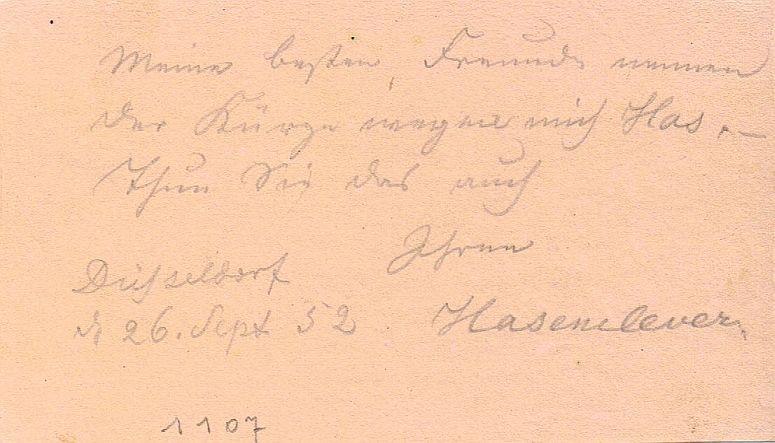 Meine besten Freunde nennen
der Kürze wegen mich Has. —
Thun Sie das auch
Ihrem
Düsseldorf
d 26. Sept 52 Hasenclever.
1107